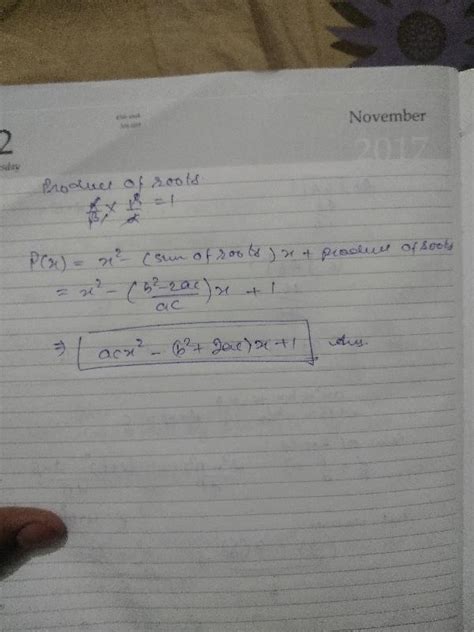 2
November
2017
sday
Product of roots
α/β × β/α = 1
P(x) = x² - (sum of roots)x + product of roots
= x² - (b²-2ac/ac)x + 1
⇒ acx² - (b²+2ac)x+1 Ans.